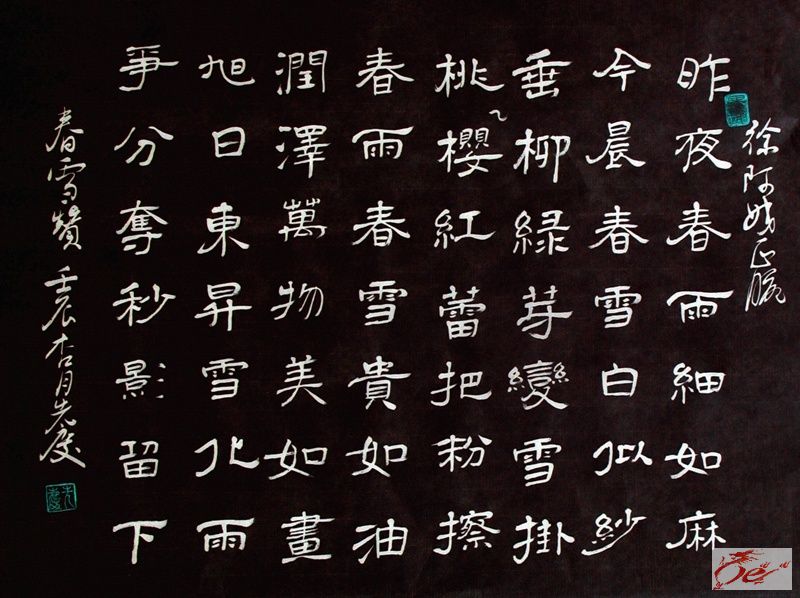 徐阿
昨夜春雨細如麻
今晨春雪白似紗
垂柳緑芽變雪掛
桃櫻紅蕾把粉擦
春雨春雪貴如油
潤澤萬物美如畫
旭日東昇雪化雨
爭分奪秒影留下
春雪贊 壬辰杏月先